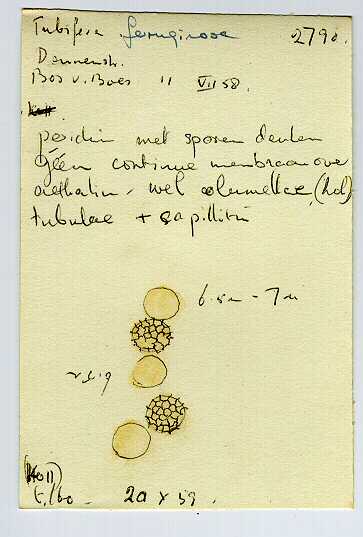 Tubifera ferruginosa 2790.
Dennenstr.
Bos v. Boes " VII 58.
peridiën met sporen deuken
géén continue membraan over
aethalium - wel columellae, (hol)
tubulae + capillitii
6.5µ - 7µ
20 x 59.